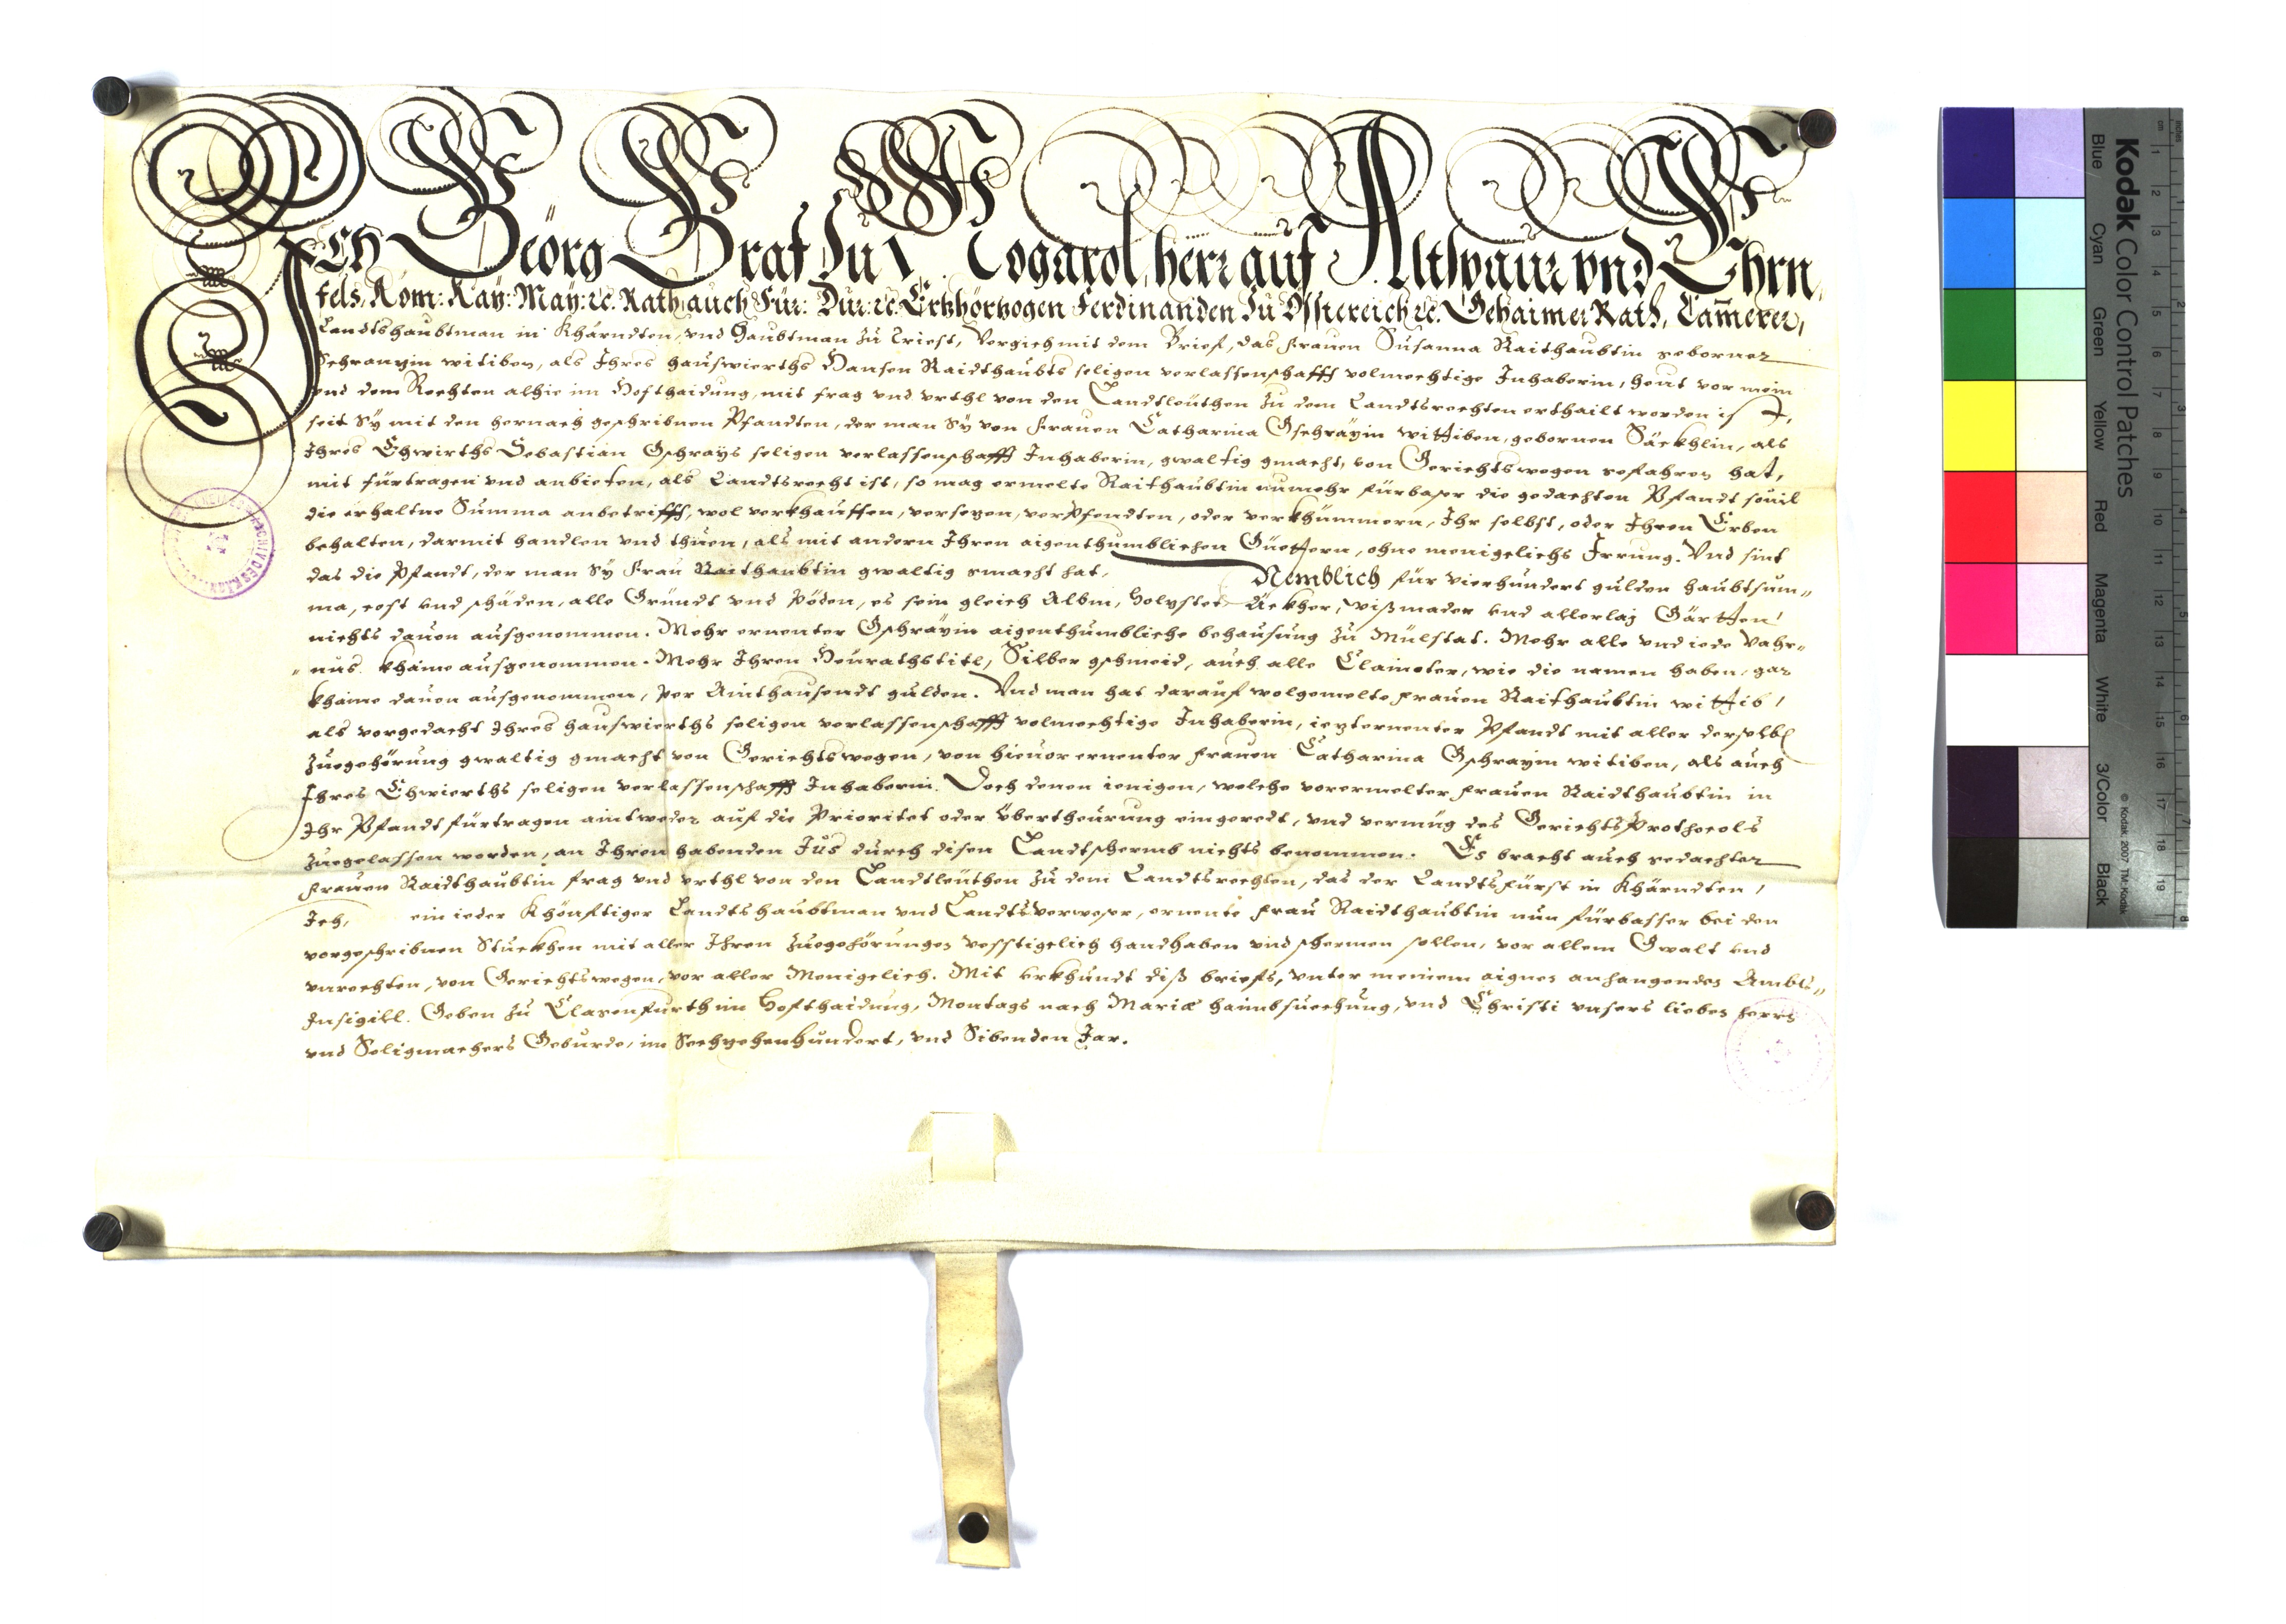 Ich Geörg Graf zu Nogarol, herr auf Altspaur vnd Ehrn,
fels, Röm: Kaÿ: Maÿ: ec. Rath, auch Für: Dur: ec. Ertzhörtzogen Ferdinanden zu Össtereich ec. Gehaimer Rath, Camerer,
Landtshaubtman in Khärndten, vnd Haubtman zu Triest, Vergich mit dem Brief, das Frauen Susanna Raithaubtin geborner
witiben, als Ihres hauswierths Hansen Raidthaubts seligen verlassenschafft volmechtige Inhaberin, heut vor mein
vnd dem Rechten alhie im Hofthaidung, mit frag vnd vrthl von den Landtleüthen zu dem Landtsrechten erthailt worden ist,
seit Sÿ mit den hernach geschribnen Pfandten, der man Sÿ von Frauen Catharina Gschräÿin wittiben, gebornen Säckhlin, als
Ihres Ehwirths Sebastian Gschraÿs seligen verlassenschafft Inhaberin, gwaltig gmacht, von Gerichtswegen gefahren hat,
mit fürtragen vnd anbieten, als Landtsrecht ist, so mag ermelte Raithaubtin numehr fürbaser die gedachten Pfandt souil
die erhaltne Summa anbetrifft, wol verkhauffen, versezen, verpfendten, oder verkhümmern, Ihr selbst, oder Ihren Erben
behalten, darmit handlen vnd thuen, als mit andern Ihren aigenthumblichen Güettern, ohne menigelichs Irrung. Vnd sint
das die Pfandt, der man Sÿ Frau Raithaubtin gwaltig gmacht hat, Nemblich für vierhundert gulden haubtsum„
ma, cost vnd schäden, alle Gründt vnd Pöden, es sein gleich Albm, Holzstet, Äckher, Wißmader vnd allerlaj Gärtten,
nichts dauon ausgenomen. Mehr ernenter Gschräÿin aigenthumbliche behausung zu Mülstat. Mehr alle vnd iede Vahr„
„nus khaine ausgenommen. Mehr Ihren Heurathstitl, Silber gschmeid, auch alle Clainoter, wie die namen haben, gar
khaine dauon ausgenommen, per Ainthausendt gulden. Vnd man hat darauf wolgemelte Frauen Raithaubtin wittib,
als vorgedacht Ihres hauswierths seligen verlassenschafft volmechtige Inhaberin, ieternenter Pfandt mit aller derselbl
zuegehörung gwaltig gmacht von Gerichtswegen, von hieuor ernenter Frauen Catharina Gschrayin witiben, als auch
Ihres Ehwierths seligen verlassenschafft Inhaberin. Doch denen ienigen, welche vorermelter Frauen Raidthaubtin in
Ihr Pfandt fürtragen aintweder auf die Prioritet oder übertheurung eingeredt, vnd vermüg des Gerichts Prothocols
zuegelassen worden, an Ihren habenden Jus durch disen Landtschermb nichts benommen. Es bracht auch gedachter
Frauen Raidthaubtin frag vnd vrthl von den Landtleüthen zu dem Landtsrechten, das der Landtsfürst in Khärndten,
Ich, ein ieder Khönftiger Landtshaubtman vnd Landtsverweser, ernente Frau Raidthaubtin nun fürbasser bei den
vorgeschribnen Stuckhen mit aller Ihren zuegehörungen vesstigelich handhaben vnd schermen sollen, vor allem Gwalt vnd
vnrechten, von Gerichtswegen, vor aller Menigelich. Mit vrkhundt diß briefs, vnter meinem aignen anhangenden Ambts„
Insigill. Geben zu Clagenfurth im Hofthaidung, Montags nach Mariæ haimbsuechung, vnd Christi vnsers lieben herrn
vnd Seligmachers Geburde, im Sechzehenhundert, vnd Sibenden Jar.
Kodak Color Control Patches
Blue Cyan Green Yellow Red Magenta White 3/Color Black
© Kodak, 2007 TM: Kodak
inches 1 2 3 4 5 6 7 8
cm 1 2 3 4 5 6 7 8 9 10 11 12 13 14 15 16 17 18 19